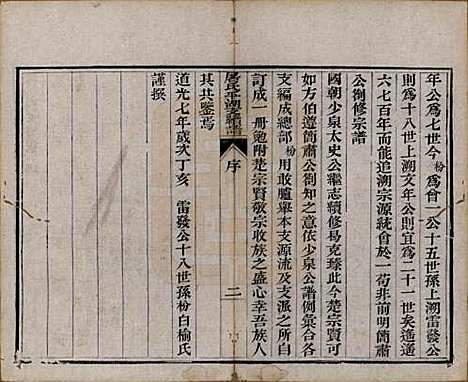 年公爲七世今枌爲會一公十五世孫上溯雷發公
則爲十八世上溯文年公則宜爲二十一世矣遙遙
六七百年而能追溯宗源統會於一苟非前明簡肅
公創修宗譜
國朝少泉太史公繼志續修易克臻此今楚宗賢可
如方伯遵簡肅公創知之意依少泉公譜例彙合各
支編成總部枌用敢臚舉本支源流及支派之所自
訂成一册勉附楚宗賢敬宗收族之盛心幸吾族人
其共鑒焉
道光七年歲次丁亥　雷發公十八世孫枌白榆氏
謹撰
屠氏平湖支續譜　序　二